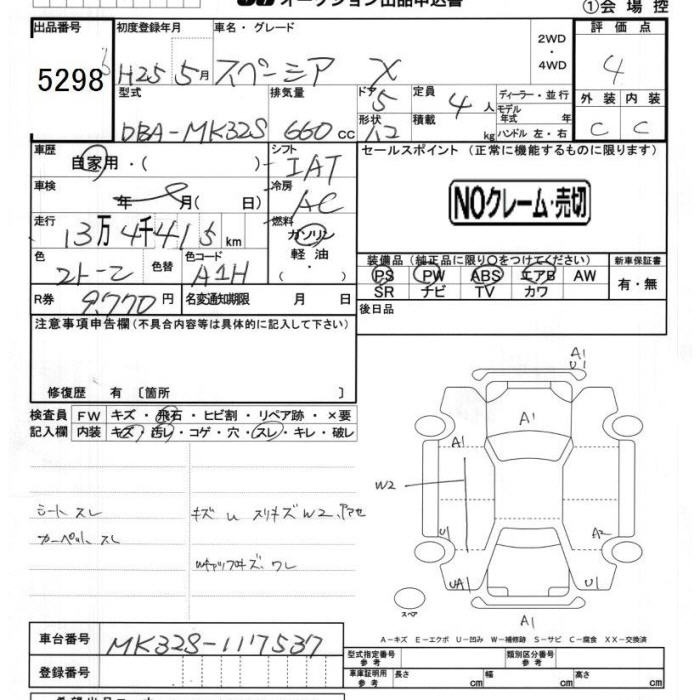 オークション出品申込書
①会場控
出品番号 初度登録年月 車名・グレード 2WD・4WD 評価点
5298 H25 5月 スペーシア X 4
型式 排気量 ドア 5 定員 4人 ディーラー・並行 外装 内装
DBA-MK32S 660cc 形状 積載 kg モデル年式 年 ハンドル 左・右 C C
車歴 自家用・( ) シフト IAT セールスポイント (正常に機能するものに限ります)
車検 年 月( 日) 冷房 AC NOクレーム・売切
走行 13万4千415km 燃料 ガソリン・軽油・
色 色替 色コード A1H
装備品 (純正品に限り○をつけてください) 新車保証書
PS PW ABS エアB AW 有・無
SR ナビ TV カワ
R券 9,770円 名変通知期限 月 日
後日品
注意事項申告欄 (不具合内容等は具体的に記入して下さい)
修復歴 有 〔箇所 〕
検査員 FW キズ・飛石・ヒビ割・リペア跡・×要
記入欄 内装 キズ・汚レ・コゲ・穴・スレ・キレ・破レ
シート スレ キズ U スリキズ W2
カーペット スレ ワレ
A1
U1
A1
A1
W2
U1 A2
UA1 U1
A1
スペア
A−キズ E−エクボ U−凹み W−補修跡 S−サビ C−腐食 XX−交換済
車台番号 MK32S-117537
登録番号
型式指定番号 参考 類別区分番号 参考
車庫証明用 参考 長さ cm 幅 cm 高さ cm